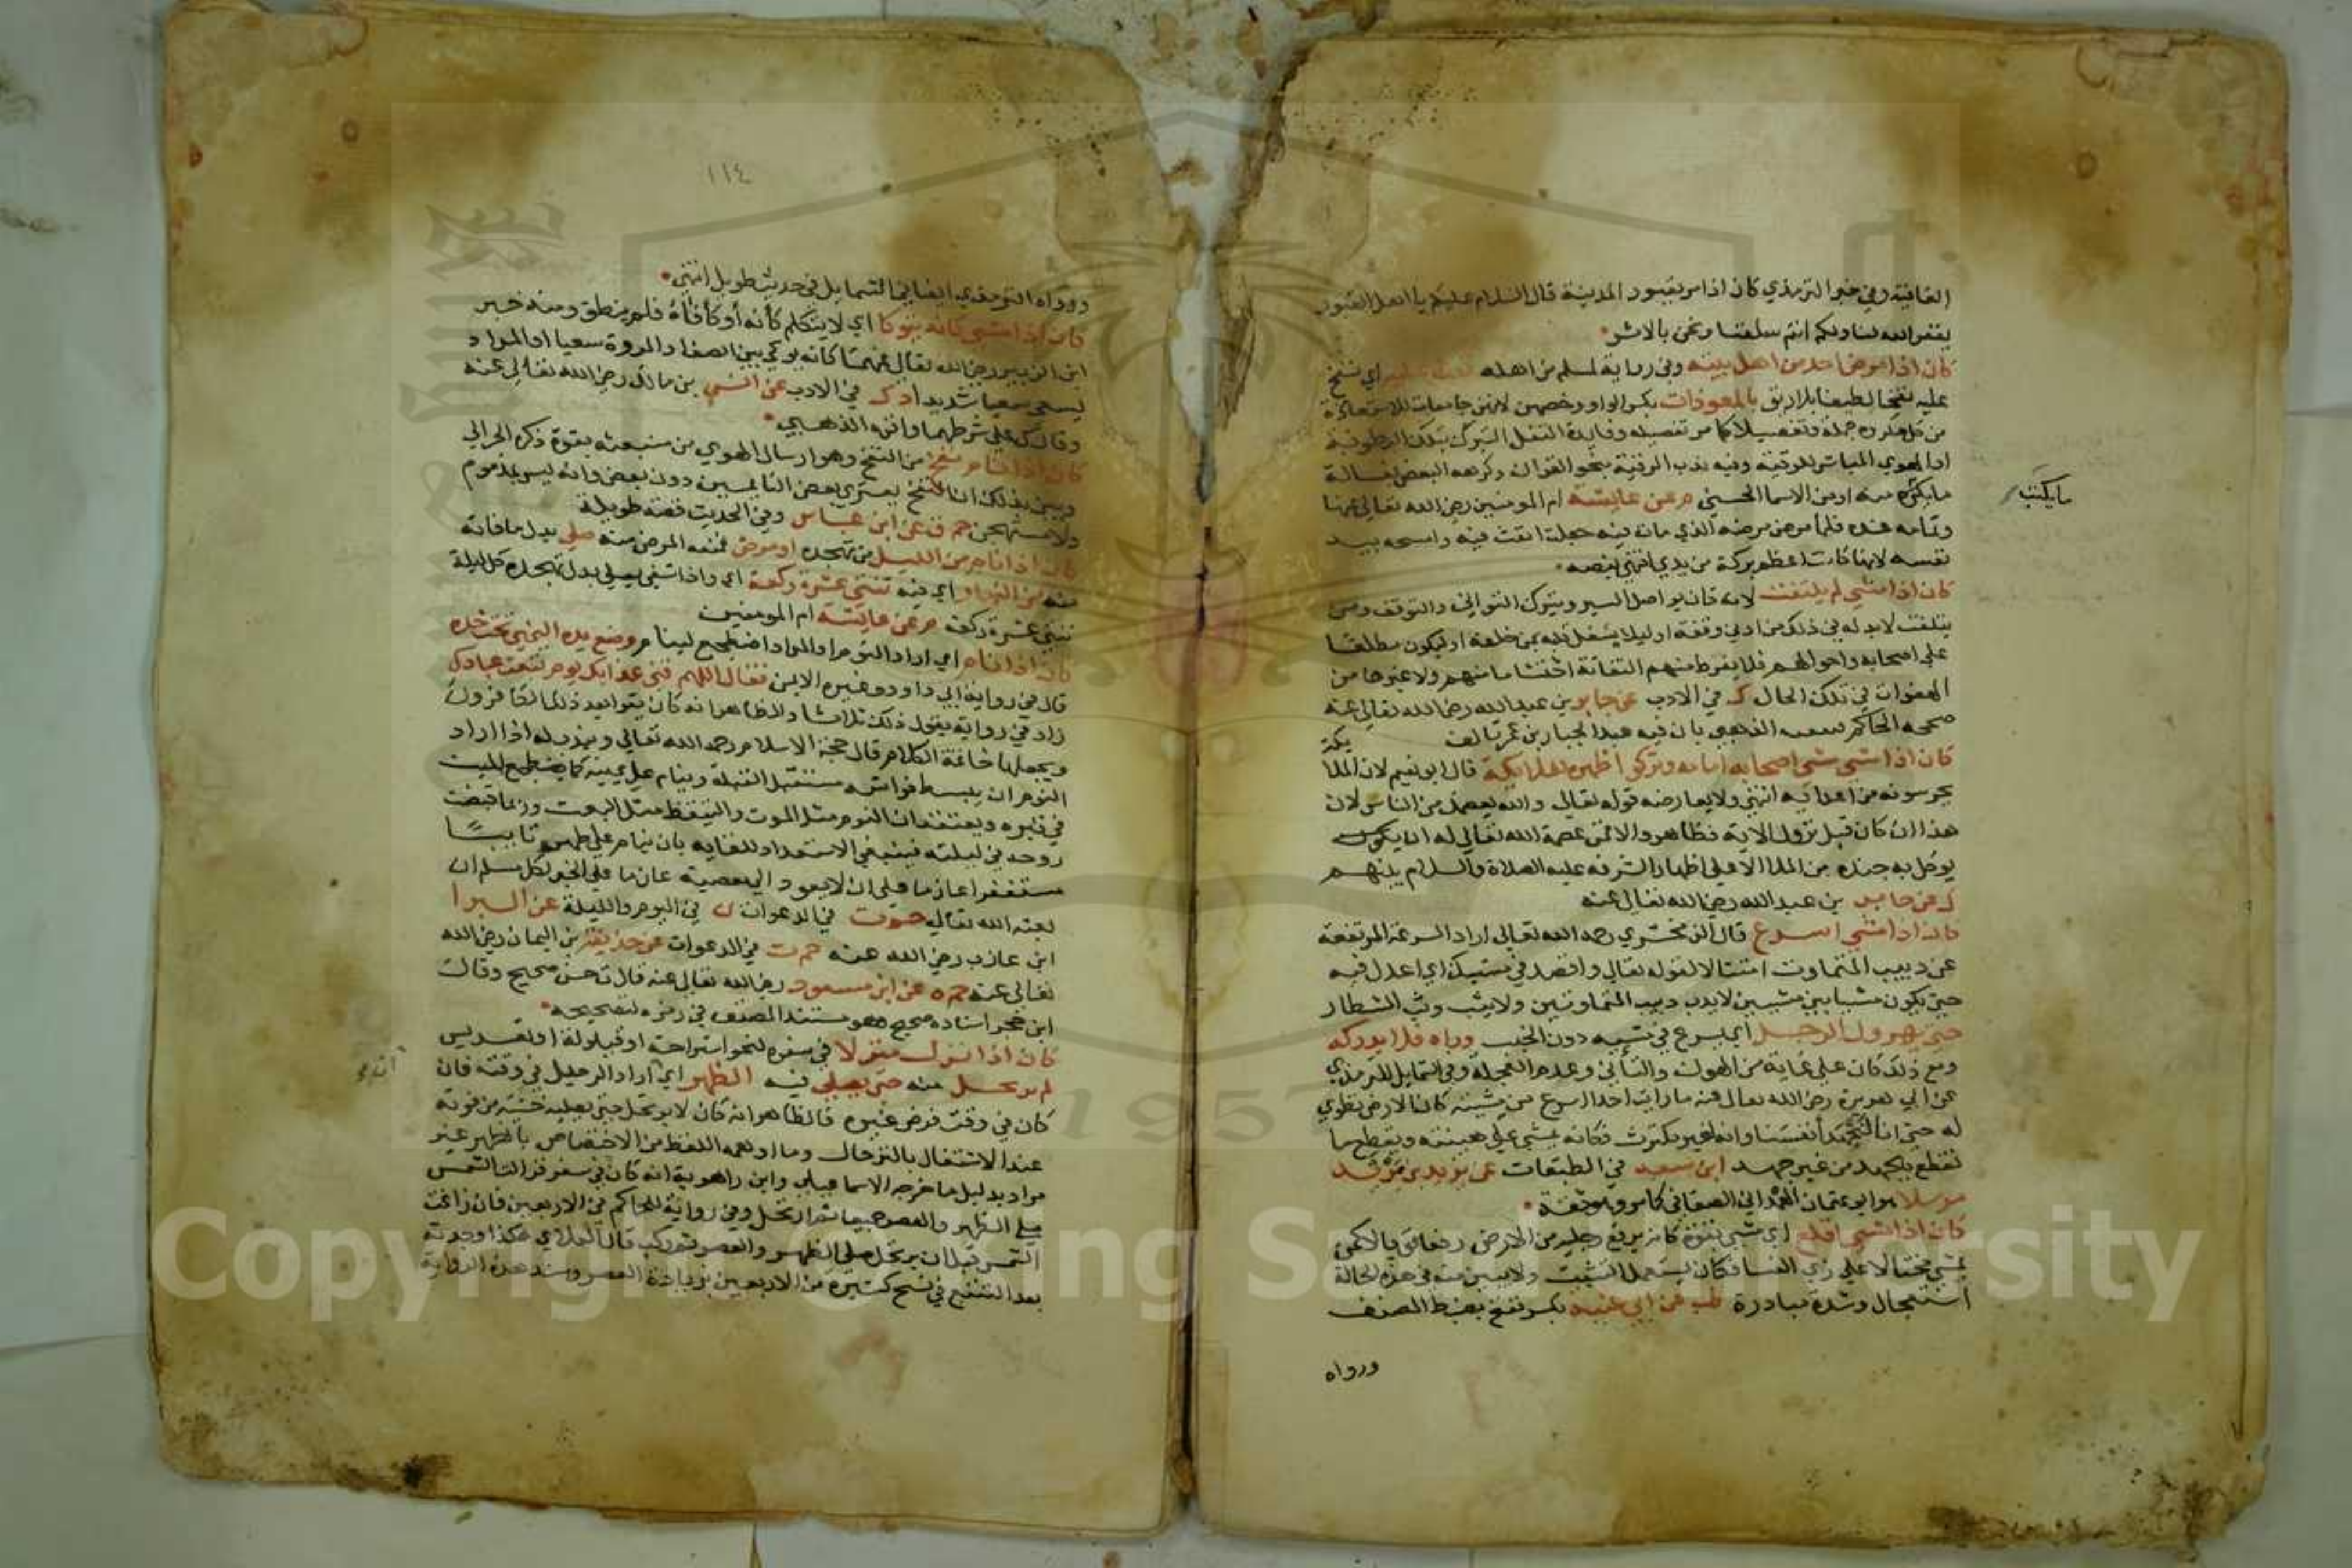 العافية وفي خبر الترمذي كان اذا مر بقبور المدينة قال السلام عليكم يا اهل القبور
يغفر الله لنا ولكم انتم سلفنا ونحن بالاثر
كان اذا مرض احد من اهل بيته وفي رواية لمسلم من اهله نفث عليه اي نفخ
عليه نفخا لطيفا بلا ريق بالمعوذات بكسر الواو وخصهن لانهن جامعات للاستعاذة
من كل مكروه جملة وتفصيلا كما مر تفصيله وفايدة التفل التبرك بتلك الرطوبة
او الهوي المباشر للرقية وفيه ندب الرقية بنحو القران وكرهه البعض بغسالة
ما يكتب منه او من الاسما الحسني م عن عايشة ام المومنين رضي الله تعالي عنها
ما يكتب
وتمامه عنده فلما مرض مرضه الذي مات فيه جعلت انفث فيه وامسحه بيد
نفسه لانها كانت اعظم بركة من يدي انتهي بنصه
كان اذا مشي لم يلتفت لانه كان يواصل السير ويترك التواني والتوقف ومن
يتلفت لابد له في ذلك من ادني وقفة او ليلا يشغل قلبه بمن خلفه او ليكون مطلعا
علي اصحابه واحوالهم فلا يفرط منهم التفاتة احتشاما منهم ولا غيرها من
الهفوات في تلك الحال ك في الادب عن جابر بن عبد الله رضي الله تعالي عنه
صححه الحاكم تعقبه الذهبي بان فيه عبد الجبار بن عمر تالف
كان اذا مشي مشي اصحابه امامه وتركوا ظهره للملايكة قال ابو نعيم لان الملا
يكة
يحرسونه من اعدايه انتهي ولا يعارضه قوله تعالي والله يعصمك من الناس لان
هذا ان كان قبل نزول الاية فظاهر والا فمن عصمة الله تعالي له ان يكون
يوكل به جنده من الملا الاعلي اظهارا لشرفه عليه الصلاة والسلام بينهم
ك عن جابر بن عبد الله رضي الله تعالي عنه
كان اذا مشي اسرع قال الزمخشري رحمه الله تعالي اراد السرعة المرتفعة
عن دبيب المتماوت امتثالا لقوله تعالي واقصد في مشيك اي اعدل فيه
حتي يكون مشيا بين مشيين لا يدب دبيب المتماوتين ولا يثب وثب الشطار
حتي يهرول الرجل اي يسرع في مشيه دون الخبب وراه فلا يدركه
ومع ذلك كان علي غاية من الهون والتأني وعدم العجلة وفي الشمايل للترمذي
عن ابي هريرة رضي الله تعالي عنه ما رايت احدا اسرع من مشيته كان الارض تطوي
له حتي انا لنجهد أنفسنا وانه لغير مكترث فكانه يمشي علي هينته ويقطع ما
نقطع بالجهد من غير جهد ابن سعد في الطبقات عن يزيد بن مرثد
مرسلا هو ابو عثمان الهمداني الصنعاني كما مر وهو ثقة
كان اذا مشي اقلع اي مشي بقوة كانه يرفع رجليه من الارض رفعا قويا لا كمن
يمشي مختالا علي زي النسا فكان يستعمل التثبت ولا يبين منه في هذه الحالة
استعجال وشدة مبادرة طب عن ابي عنبه بكسر ففتح بضبط المصنف
ورواه
١١٤
ورواه الترمذي ايضا في الشمايل في حديث طويل انتهي
كان اذا مشي كانه يتوكا اي لا يتكلم كأنه أوكأ فاهُ فلم ينطق ومنه خبر
ابن الزبير رضي الله تعالي عنهما كانه يوكي بين الصفا والمروة سعيا او المراد
يسعي سعيا شديدا د ك في الادب عن انس بن مالك رضي الله تعالي عنه
وقال ك علي شرطهما واقره الذهبي
كان اذا نام نفخ من النفخ وهو ارسال الهوي من منبعثه بقوة ذكره الحرالي
وبين بذلك ان النفخ يعتري بعض النايمين دون بعض وانه ليس بمذموم
ولا مستهجن حم ق عن ابن عباس وفي الحديث قصة طويلة
كان اذا نام من الليل من تهجده او مرض فمنعه المرض منه صلي بدل ما فاته
منه من النهار اي فيه ثنتي عشرة ركعة اي واذا شفي يصلي بدل تهجده كل ليلة
ثنتي عشرة ركعة م عن عايشة ام المومنين
كان اذا نام اي اراد النوم او المراد اضطجع لينام وضع يده اليمني تحت خده
قال في رواية ابي داود وغيره الايمن فقال اللهم قني عذابك يوم تبعث عبادك
زاد في رواية يقول ذلك ثلاثا والظاهر انه كان يقرا بعد ذلك الكافرون
ويجعلها خاتمة الكلام قال حجة الاسلام رحمه الله تعالي ويندب له اذا اراد
النوم ان يبسط فراشه مستقبل القبلة وينام علي يمينه كما يضطجع الميت
في قبره ويعتقد ان النوم مثل الموت والتيقظ مثل البعث وربما قبضت
روحه في ليلته فينبغي الاستعداد للقايه بان ينام علي طهر تايبًا
مستغفرا عازما علي ان لا يعود الي معصية عازما علي الخير لكل مسلم ان
بعثه الله تعالي حم ت في الدعوات ن في اليوم والليلة عن البرا
ابن عازب رضي الله عنه حم ت في الدعوات عن حذيفة بن اليمان رضي الله
تعالي عنه حم ه عن ابن مسعود رضي الله تعالي عنه قال ت حسن صحيح وقال
ابن حجر اسناده صحيح وهو مستند المصنف في رمزه لتصحيحه
كان اذا نزل منزلا في سفره لنحو استراحة او قيلولة او تعريس
لم يرتحل منه حتي يصلي فيه الظهر اي اراد الرحيل في وقته فان
كان في وقت فرض غيره فالظاهر انه كان لا يرتحل حتي يصليه خشية من فوته
عند الاشتغال بالترحال وما اوهمه اللفظ من الاختصاص بالظهر غير
مراد بدليل ما خرجه الاسماعيلي وابن راهوية انه كان في سفر فزالت الشمس
صلي الظهر والعصر جميعا ثم ارتحل وفي رواية للحاكم في الاربعين فان زاغت
الشمس قبل ان يرتحل صلي الظهر والعصر ثم ركب قال العلاي هكذا وجدته
بعد التتبع في نسخ كثيرة من الاربعين بزيادة العصر وسند هذه الرواية
Copyright © King Saud University
1957